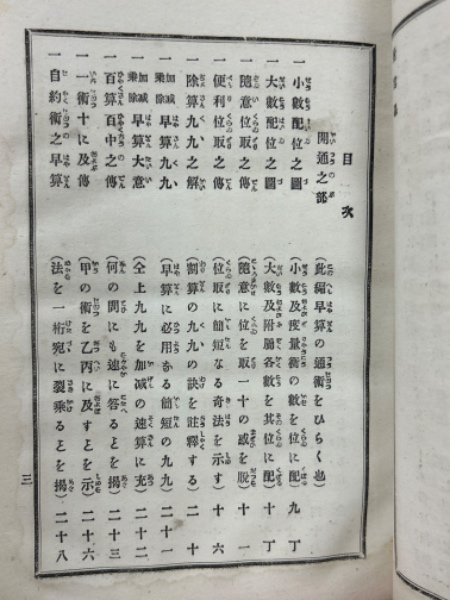 目次
開通之部 (此編早算の通術をひらく也)
一 小數配位之圖 (小數及度量衡の數を位に配) 九丁
一 大數配位之圖 (大數及附屬各數を其位に配) 十丁
一 隨意位取之傳 (隨意に位を取一十の惑を脫) 十一
一 便利位取之傳 (位取に簡短なる奇法を示す) 十六
一 除算九九之解 (割算の九九の訣を註釋する) 二十
一 加減乘除早算九九 (早算に必用なる簡短の九九) 二十一
一 加減乘除早算大意 (仝上九九を加減の速算に充) 二十二
一 百算百中之傳 (何の問にも速に答るヿを揭) 二十三
一 一術十に及傳 (甲の術を乙丙に及すヿを示) 二十六
一 自約術之早算 (法を一桁宛に裂乘るヿを揭) 二十八
三